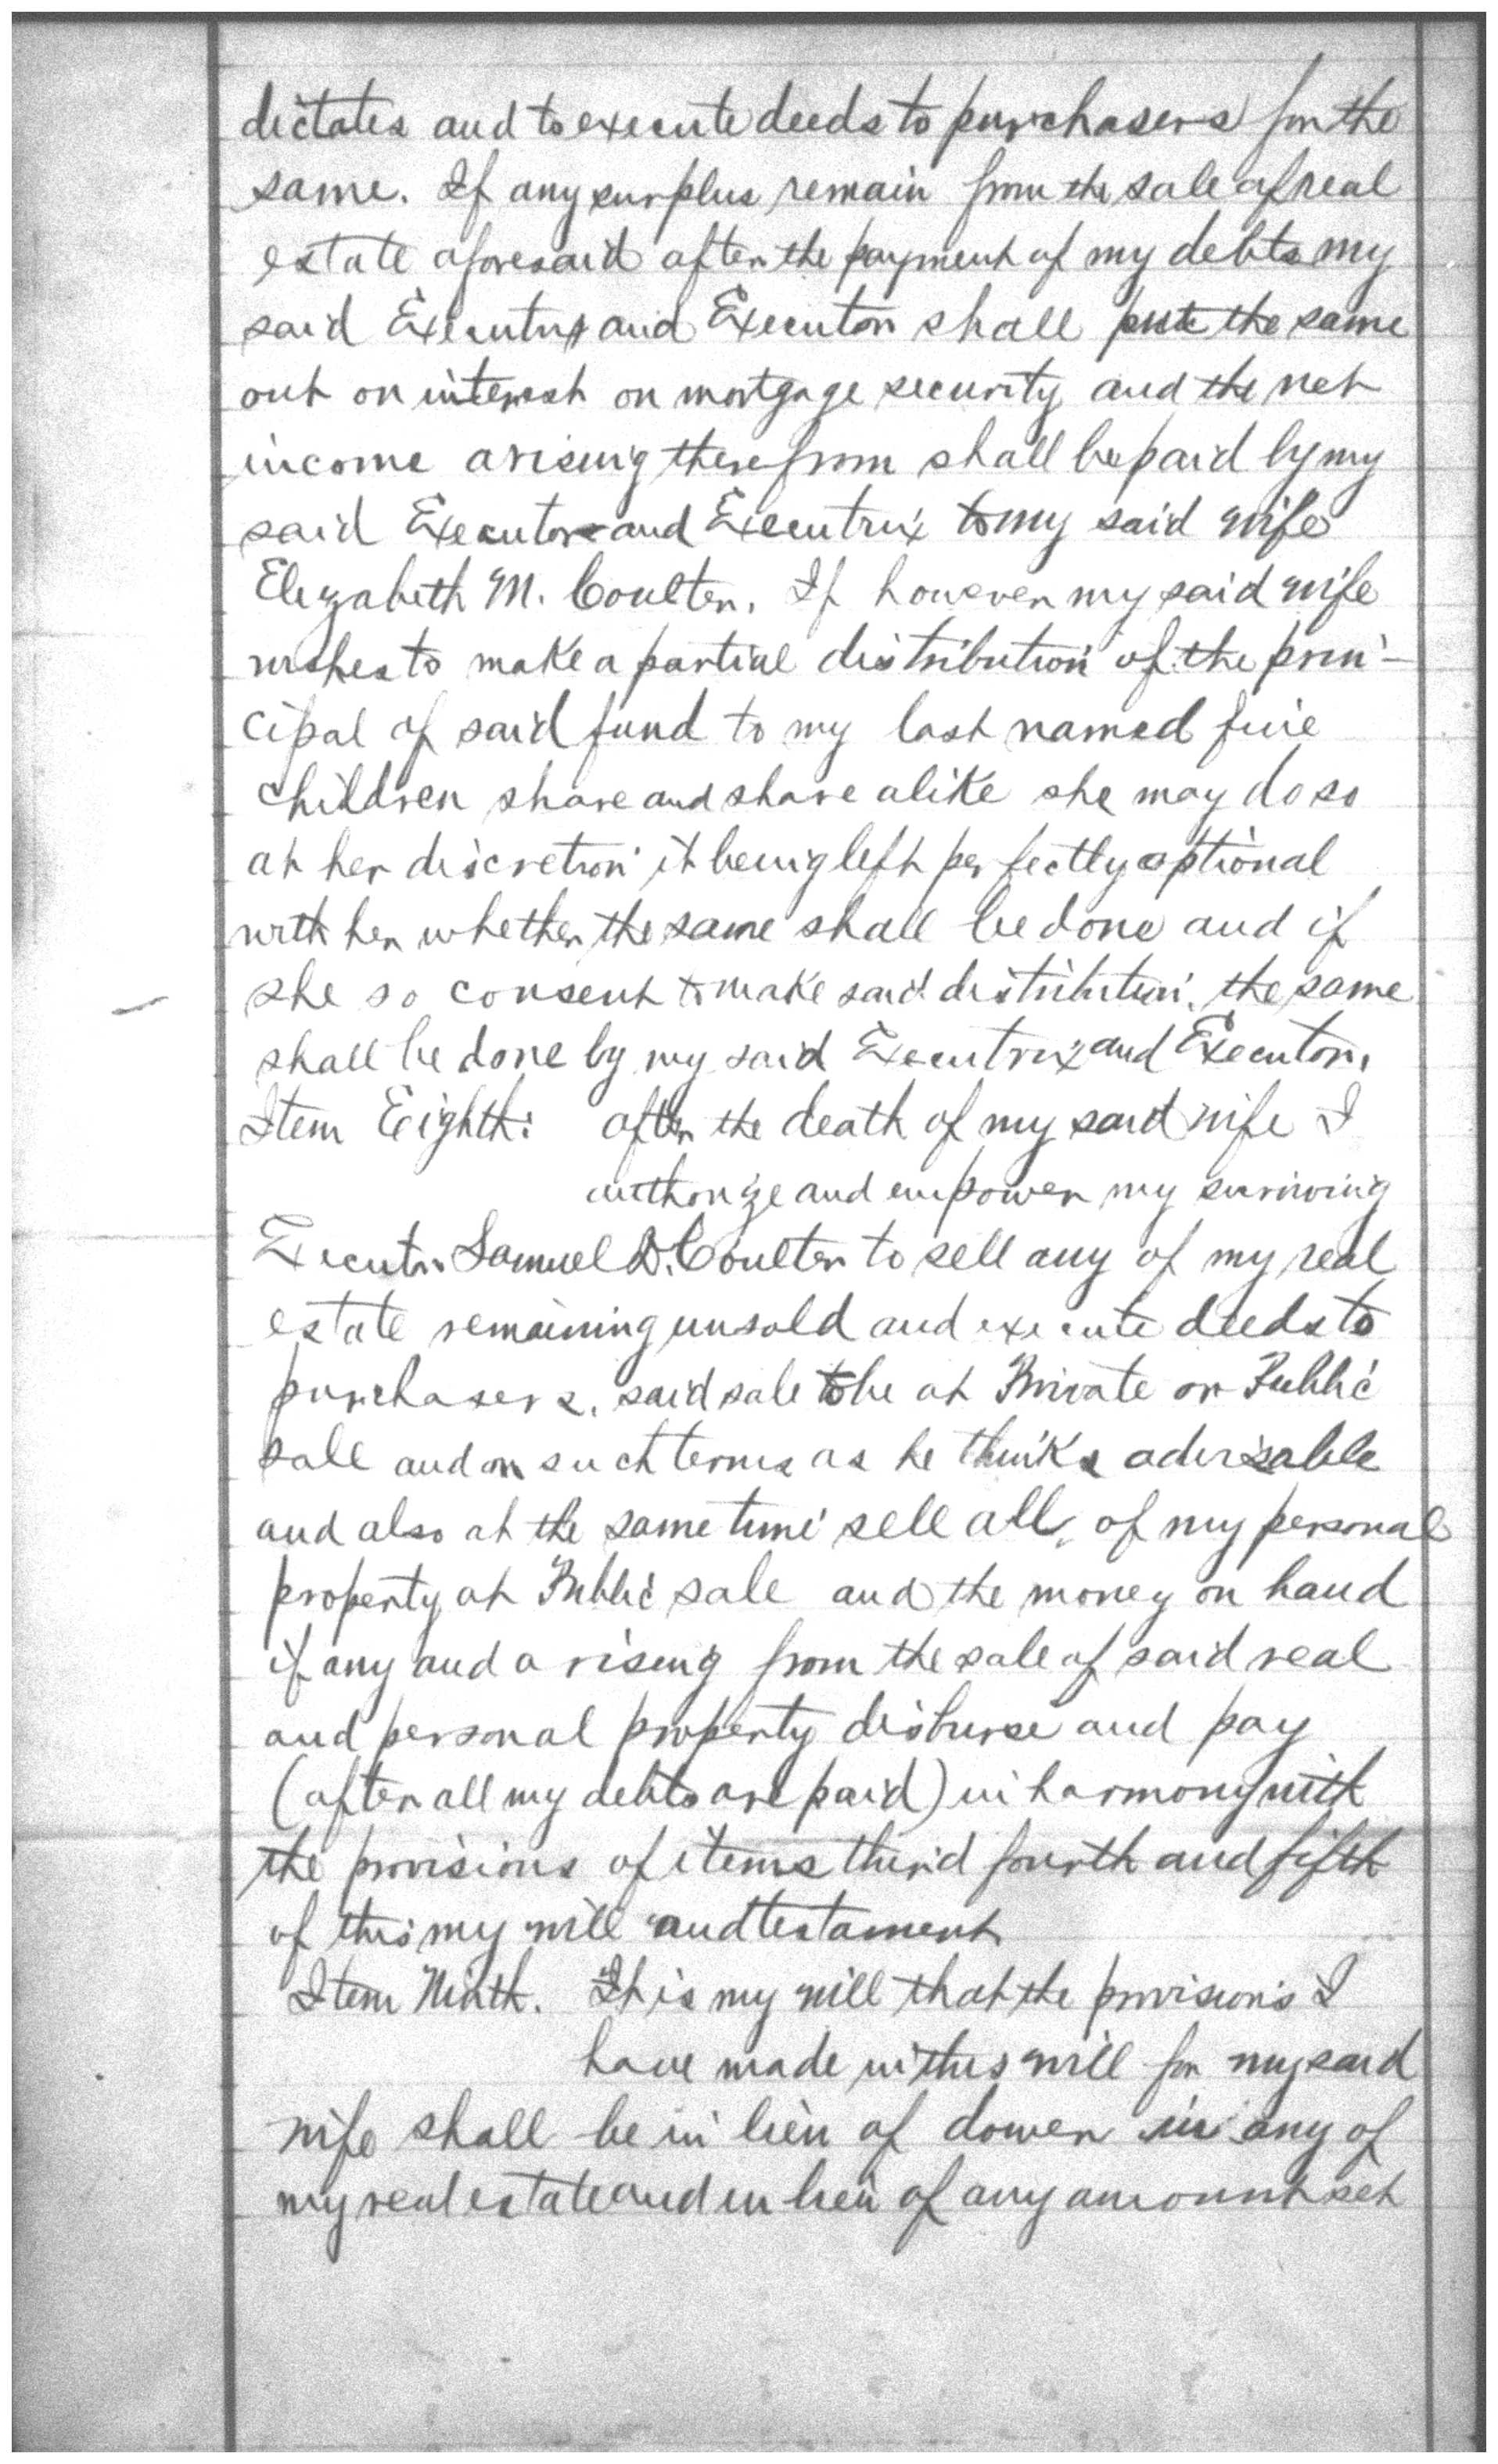 dictates and to execute deeds to purchasers for the
same. If any surplus remain from the sale of real
estate aforesaid after the payment of my debts my
said Executrix and Executor shall put the same
out on interest on mortgage security and the net
income arising therefrom shall be paid by my
said Executor and Executrix to my said wife
Elizabeth M. Coulter. If however my said wife
wishes to make a partial distribution of the prin-
cipal of said fund to my last named five
children share and share alike she may do so
at her discretion it being left perfectly optional
with her whether the same shall be done and if
she so consent to make said distribution, the same
shall be done by my said Executrix and Executor.
Item Eighth: after the death of my said wife I
authorize and empower my surviving
Executor Samuel D. Coulter to sell any of my real
estate remaining unsold and execute deeds to
purchasers, said sale to be at Private or Public
sale and on such terms as he thinks advisable
and also at the same time sell all, of my personal
property at Public sale and the money on hand
if any and arising from the sale of said real
and personal property disburse and pay
(after all my debts are paid) in harmony with
the provisions of items third fourth and fifth
of this my will and testament
Item Ninth. It is my will that the provisions I
have made in this will for my said
wife shall be in lieu of dower in any of
my real estate and in lieu of any amount set